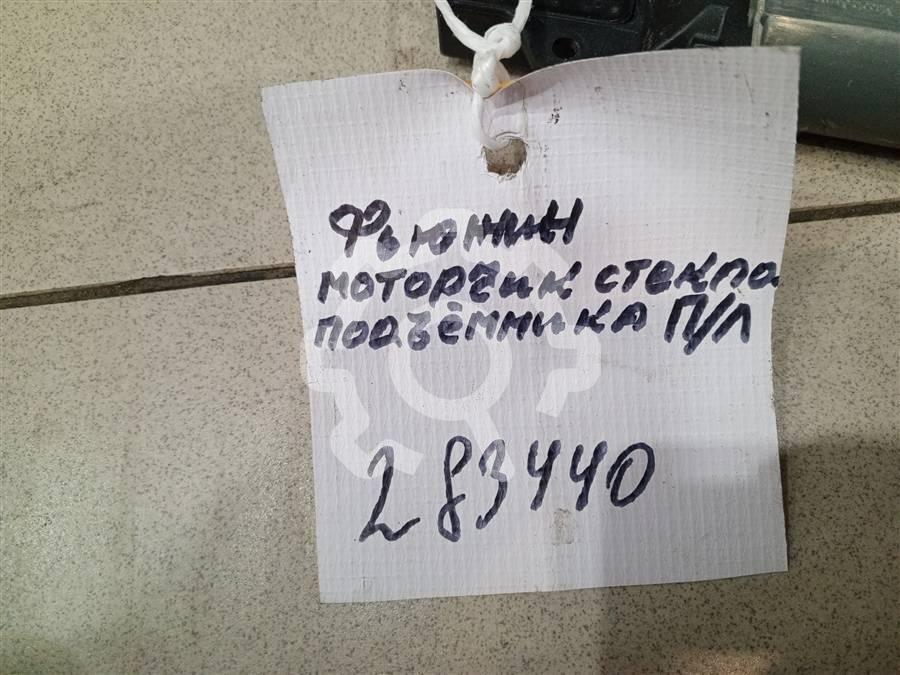 Фьюжин
моторчик стекло
подъёмника П/Л
283440